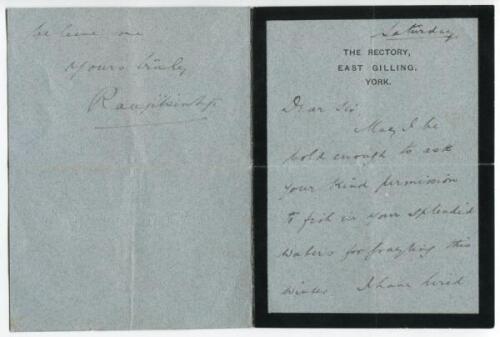 Saturday
THE RECTORY,
EAST GILLING,
YORK.
Dear Sir
May I be
bold enough to ask
your kind permission
to fish in your splendid
waters for grayling this
winter I have hired
believe me
Yours truly
Ranjitsinhji